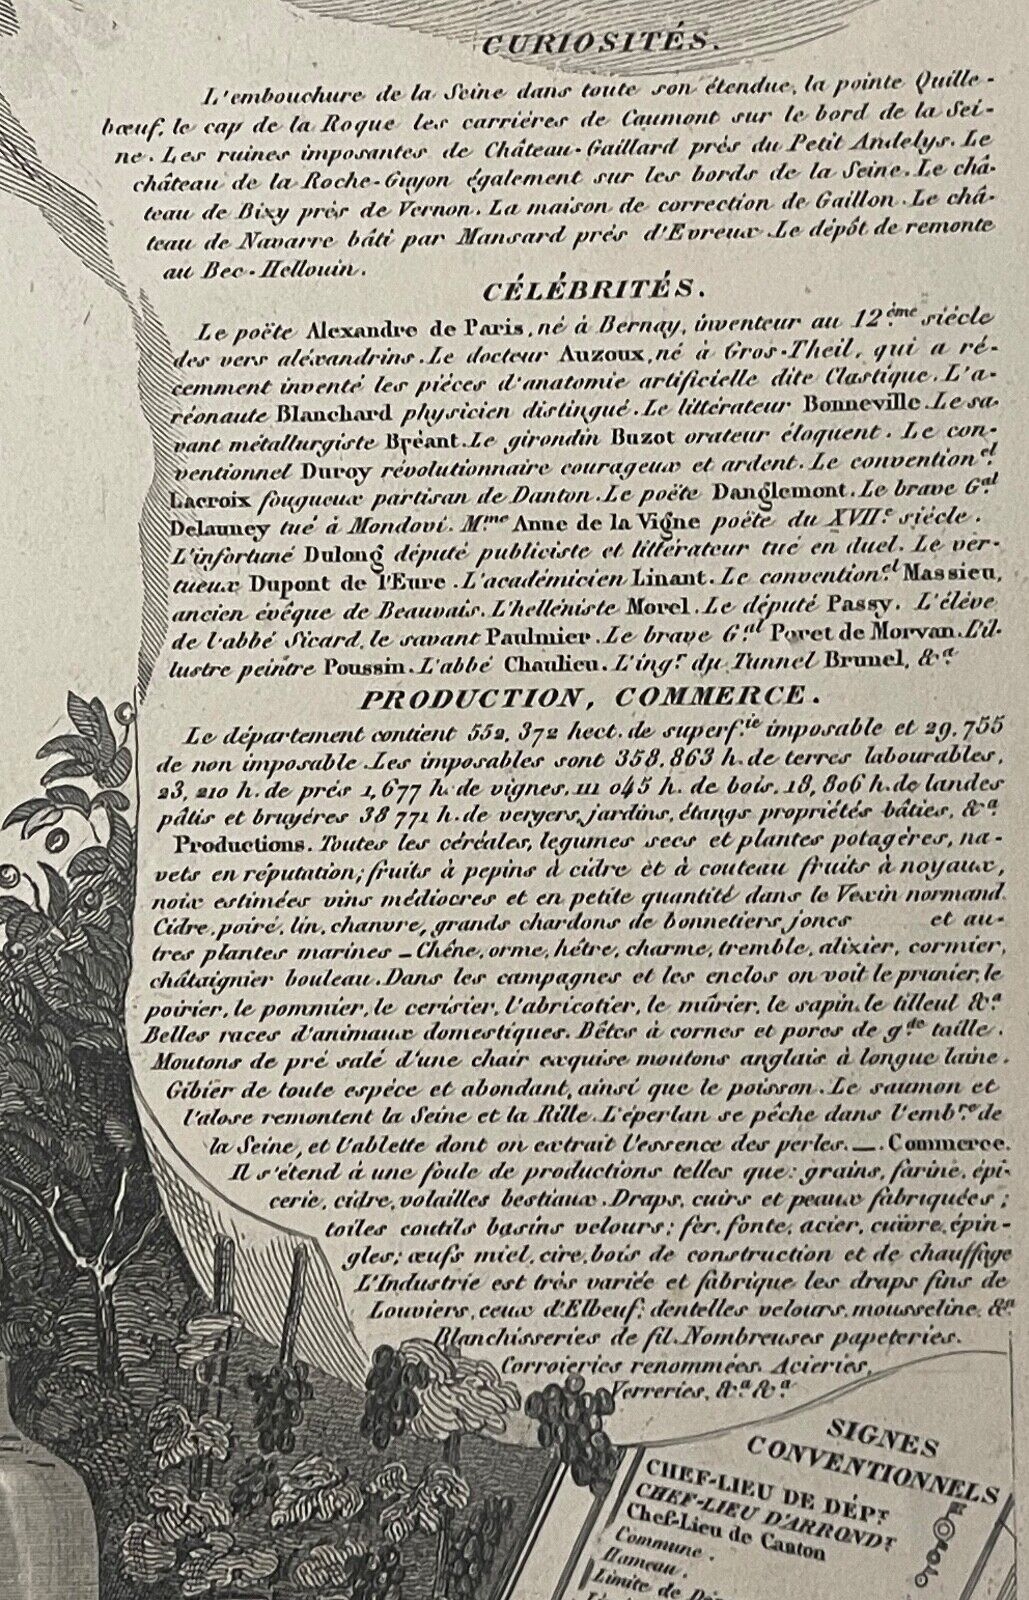 CURIOSITÉS.
L'embouchure de la Seine dans toute son étendue, la pointe Quille-
bœuf, le cap de la Roque les carrières de Caumont sur le bord de la Sei-
ne. Les ruines imposantes de Château-Gaillard près du Petit Andelys. Le
château de la Roche-Guyon également sur les bords de la Seine. Le châ-
teau de Bixy près de Vernon. La maison de correction de Gaillon. Le châ-
teau de Navarre bâti par Mansard près d'Evreux. Le dépôt de remonte
au Bec-Hellouin.
CÉLÉBRITÉS.
Le poëte Alexandre de Paris, né à Bernay, inventeur au 12ème siècle
des vers aléxandrins. Le docteur Auzoux, né à Gros-Theil, qui a ré-
cemment inventé les pièces d'anatomie artificielle dite Clastique. L'a-
réonaute Blanchard physicien distingué. Le littérateur Bonneville. Le sa-
vant métallurgiste Bréant. Le girondin Buzot orateur éloquent. Le con-
ventionnel Duroy révolutionnaire courageux et ardent. Le convention.el
Lacroix fougueux partisan de Danton. Le poëte Danglemont. Le brave G.al
Delauney tué à Mondovi. M.me Anne de la Vigne poëte du XVII.e siécle.
L'infortuné Dulong député publiciste et littérateur tué en duel. Le ver-
tueux Dupont de l'Eure. L'académicien Linant. Le convention.el Massieu,
ancien évêque de Beauvais. L'helléniste Morel. Le député Passy. L'éléve
de l'abbé Sicard, le savant Paulmier. Le brave G.al Poret de Morvan. L'il-
lustre peintre Poussin. L'abbé Chaulieu. L'ing.r du Tunnel Brunel, &.a
PRODUCTION, COMMERCE.
Le département contient 552,372 hect. de superf.ie imposable et 29,755
de non imposable. Les imposables sont 358,863 h. de terres labourables,
23,210 h. de prés 1,677 h. de vignes. 111 045 h. de bois. 18,806 h. de landes
pâtis et bruyéres 38 771 h. de vergers, jardins, étangs propriétés bâties, &.a
Productions. Toutes les céréales, legumes secs et plantes potagères, na-
vets en réputation; fruits à pepins à cidre et à couteau fruits à noyaux,
noix estimées vins médiocres et en petite quantité dans le Vexin normand.
Cidre, poiré, lin, chanvre, grands chardons de bonnetiers joncs et au-
tres plantes marines _ Chêne, orme, hêtre, charme, tremble, alixier, cormier,
châtaignier bouleau. Dans les campagnes et les enclos on voit le prunier, le
poirier, le pommier, le cerisier, l'abricotier, le mûrier, le sapin, le tilleul &.a
Belles races d'animaux domestiques. Bêtes à cornes et porcs de g.de taille.
Moutons de pré salé d'une chair exquise moutons anglais à longue laine.
Gibier de toute espéce et abondant, ainsi que le poisson. Le saumon et
l'alose remontent la Seine et la Rille. L'éperlan se pêche dans l'emb.re de
la Seine, et l'ablette dont on extrait l'essence des perles. __ Commerce.
Il s'étend à une foule de productions telles que: grains, farine, épi-
cerie, cidre, volailles bestiaux. Draps, cuirs et peaux fabriquées;
toiles coutils basins velours; fer, fonte, acier, cuivre, épin-
gles; œufs miel, cire, bois de construction et de chauffage
L'Industrie est très variée et fabrique les draps fins de
Louviers, ceux d'Elbeuf; dentelles velours, mousseline, &.a
Blanchisseries de fil. Nombreuses papeteries.
Corroieries renommées. Acieries,
Verreries, &.a &.a
SIGNES
CONVENTIONNELS
CHEF-LIEU DE DÉP.T
CHEF-LIEU D'ARROND.T
Chef-Lieu de Canton
Commune.
Hameau.
Limite de